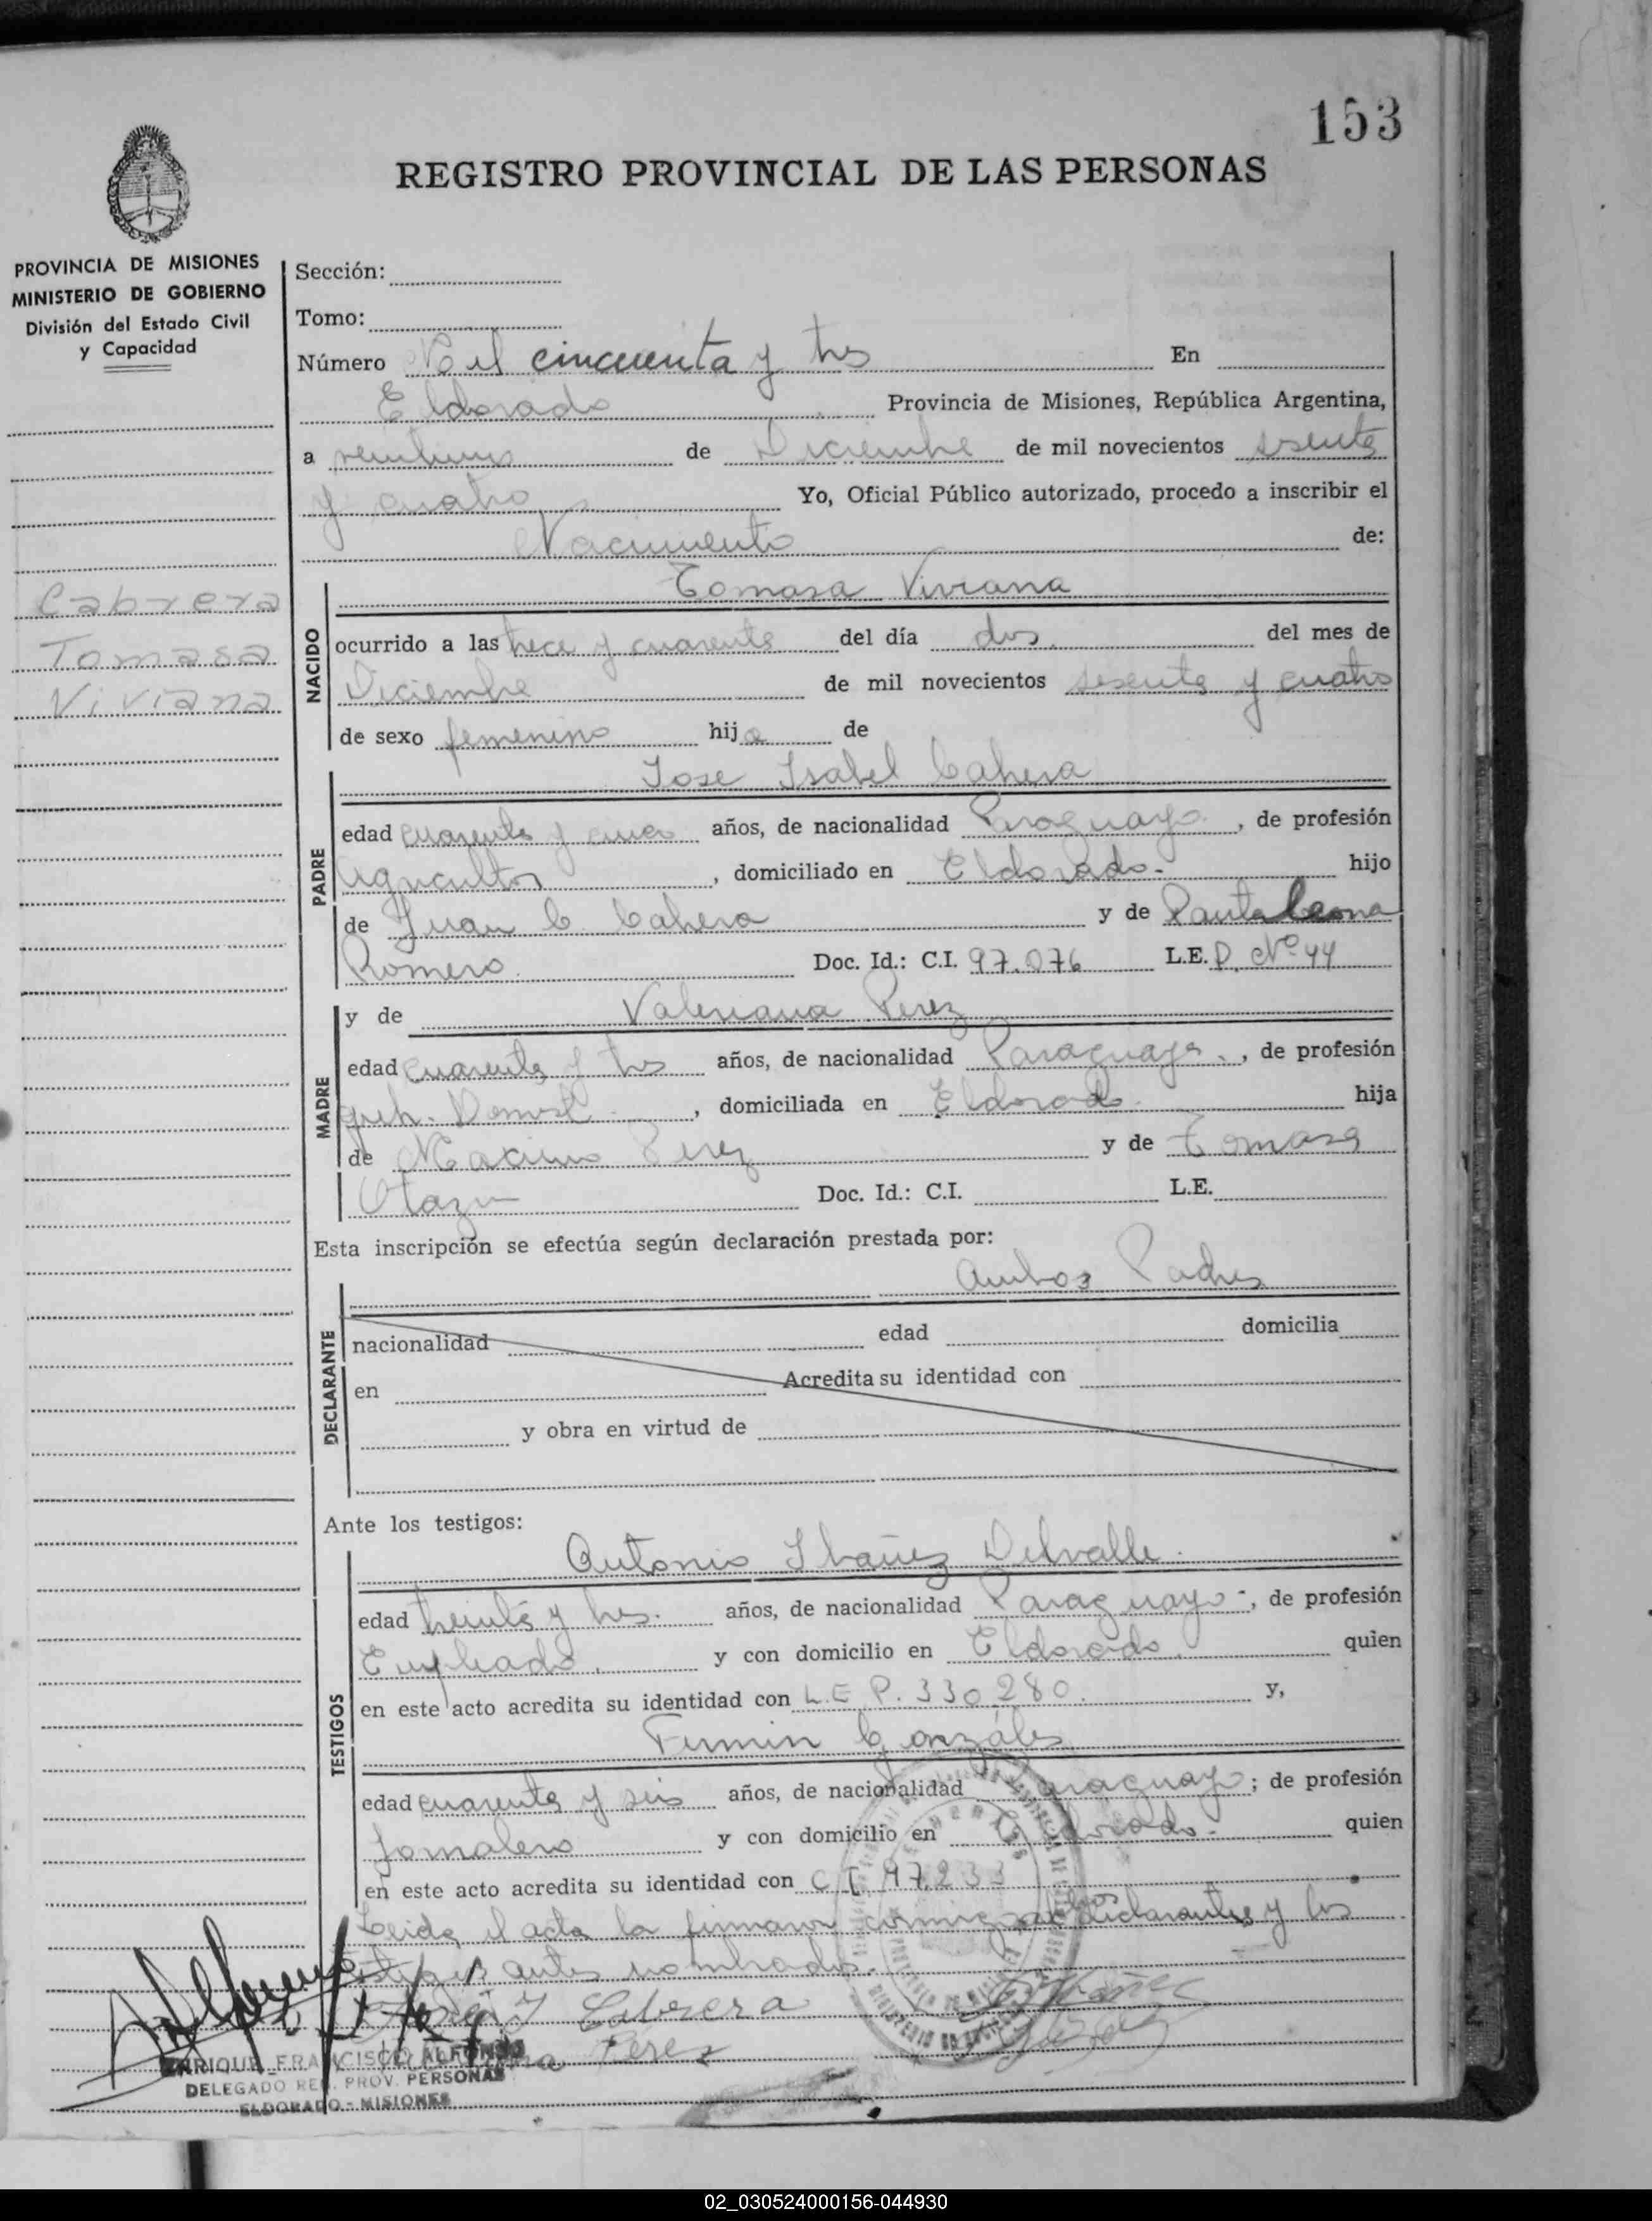 153
REGISTRO PROVINCIAL DE LAS PERSONAS
PROVINCIA DE MISIONES
MINISTERIO DE GOBIERNO
División del Estado Civil
y Capacidad
Cabrera
Tomasa
Viviana
Sección:
Tomo:
Número Mil cincuenta y tres En
Eldorado Provincia de Misiones, República Argentina,
a veintiuno de Diciembre de mil novecientos sesenta
y cuatro Yo, Oficial Público autorizado, procedo a inscribir el
Nacimiento de:
NACIDO
Tomasa Viviana
ocurrido a las trece y cuarenta del día dos del mes de
Diciembre de mil novecientos sesenta y cuatro
de sexo femenino hija de
PADRE
Jose Isabel Cabrera
edad cuarenta y cinco años, de nacionalidad Paraguayo, de profesión
Agricultor, domiciliado en Eldorado.- hijo
de Juan C. Cabrera y de Pantaleona
Romero. Doc. Id.: C.I. 97.076 L.E. P. Nº 44
MADRE
y de Valeriana Perez
edad cuarenta y tres años, de nacionalidad Paraguaya, de profesión
queh. Domest., domiciliada en Eldorado. hija
de Maximo Perez y de Tomasa
Otazu Doc. Id.: C.I. L.E.
Esta inscripción se efectúa según declaración prestada por:
DECLARANTE
Ambos Padres
nacionalidad edad domicilia
en Acredita su identidad con
y obra en virtud de
Ante los testigos:
TESTIGOS
Antonio Ibañez Delvalle.
edad treinta y tres. años, de nacionalidad Paraguayo-, de profesión
Empleado. y con domicilio en Eldorado. quien
en este acto acredita su identidad con L.E P. 330280. y,
Fermin Gonzáles
edad cuarenta y seis años, de nacionalidad Paraguayo; de profesión
Jornalero y con domicilio en Eldorado.- quien
en este acto acredita su identidad con C I. 97.233
Leida el acta la firman conmigo los declarantes y los
testigos antes nombrados.
José I Cabrera
Perez
ENRIQUE FRANCISCO ALFONSO
DELEGADO REG. PROV. PERSONAS
ELDORADO.- MISIONES
02_030524000156-044930